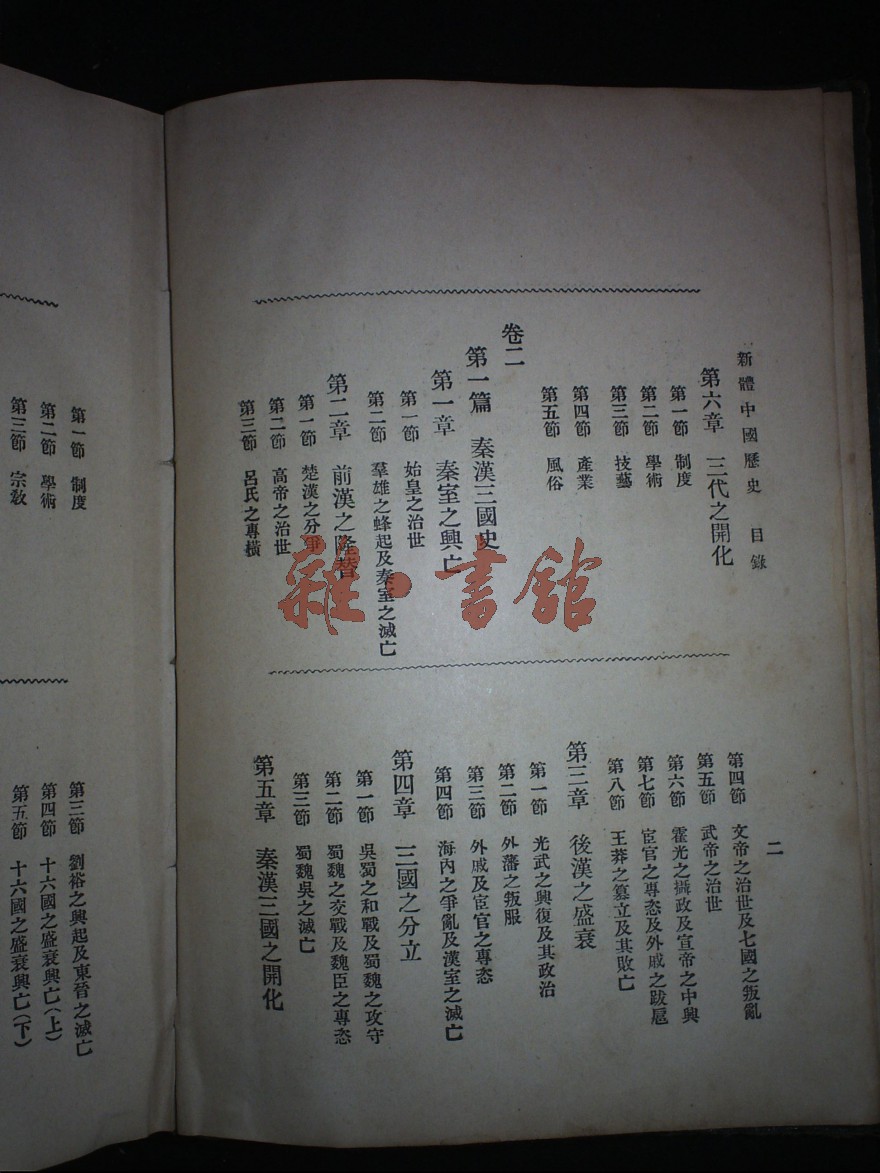 新體中國歷史 目錄
二
第六章 三代之開化
第一節 制度
第二節 學術
第三節 技藝
第四節 產業
第五節 風俗
卷二
第一篇 秦漢三國史
第一章 秦室之興亡
第一節 始皇之治世
第二節 羣雄之蜂起及秦室之滅亡
第二章 前漢之隆替
第一節 楚漢之分爭
第二節 高帝之治世
第三節 呂氏之專橫
第四節 文帝之治世及七國之叛亂
第五節 武帝之治世
第六節 霍光之攝政及宣帝之中興
第七節 宦官之專恣及外戚之跋扈
第八節 王莽之篡立及其敗亡
第三章 後漢之盛衰
第一節 光武之興復及其政治
第二節 外藩之叛服
第三節 外戚及宦官之專恣
第四節 海內之爭亂及漢室之滅亡
第四章 三國之分立
第一節 吳蜀之和戰及蜀魏之攻守
第二節 蜀魏之交戰及魏臣之專恣
第三節 蜀魏吳之滅亡
第五章 秦漢三國之開化
第一節 制度
第二節 學術
第三節 宗教
第三節 劉裕之興起及東晉之滅亡
第四節 十六國之盛衰興亡(上)
第五節 十六國之盛衰興亡(下)
雜·書館